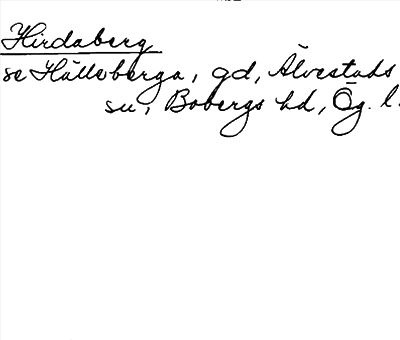 Hirdaberg
se Hälleberga, gd, Älvestads
sn, Bobergs hd, Ög. l.